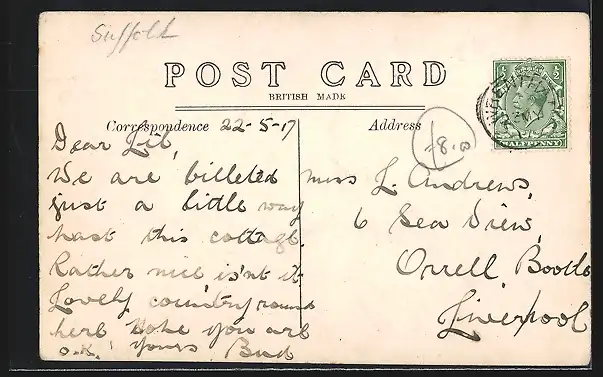 Suffolk
POST CARD
BRITISH MADE
Correspondence 22-5-17
Address
8.0
½ ½
HALFPENNY
WRENTHAM
Dear Lil,
We are billeted
just a little way
past this cottage.
Rather nice is'nt it
Lovely country round
here Hope you are
o.k. yours Bud
Miss L. Andrews,
6 Sea View,
Orrell Bootle
Liverpool